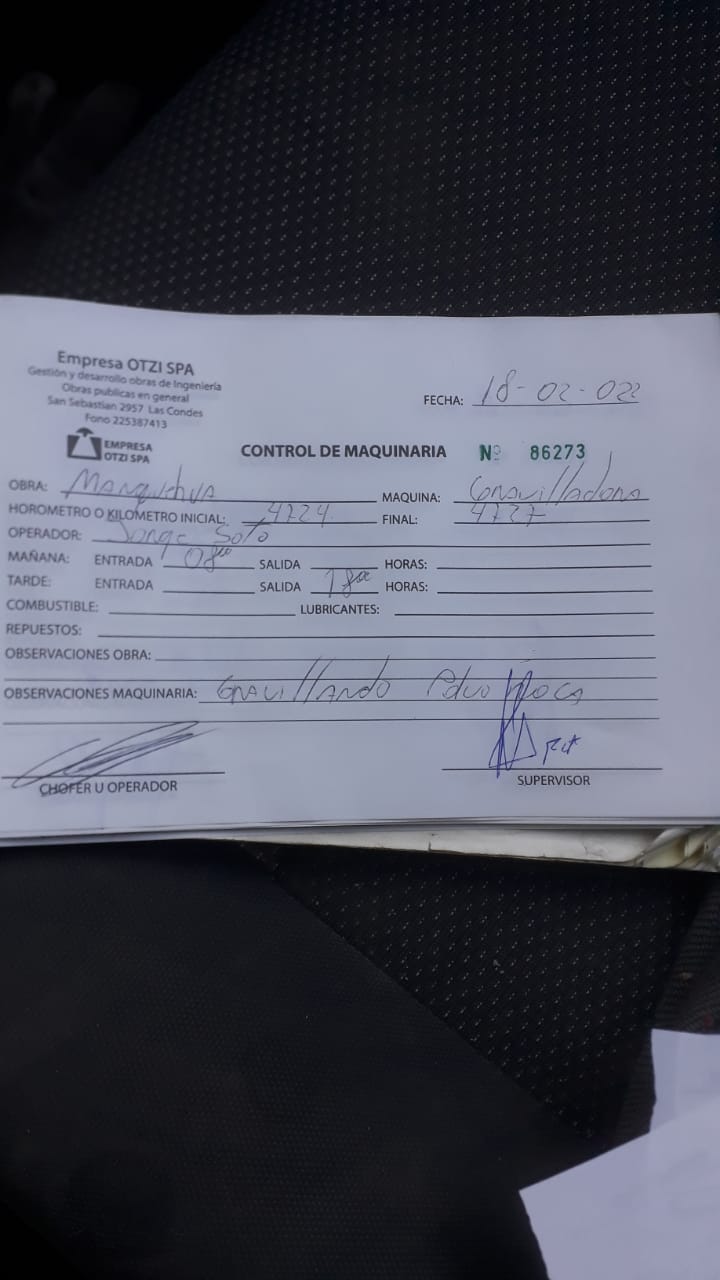 Empresa OTZI SPA
Gestión y desarrollo obras de Ingeniería
Obras publicas en general
San Sebastian 2957 Las Condes
Fono 225387413
EMPRESA
OTZI SPA
FECHA: 18-02-022
CONTROL DE MAQUINARIA Nº 86273
OBRA: MAQUINA: Gravilladora
HOROMETRO O KILOMETRO INICIAL: 4724 FINAL: 4727
OPERADOR: Jorge Soto
MAÑANA: ENTRADA 08⁰⁰ SALIDA HORAS:
TARDE: ENTRADA SALIDA 18⁰⁰ HORAS:
COMBUSTIBLE: LUBRICANTES:
REPUESTOS:
OBSERVACIONES OBRA:
OBSERVACIONES MAQUINARIA: Gravillando Polvo Roca
CHOFER U OPERADOR
SUPERVISOR